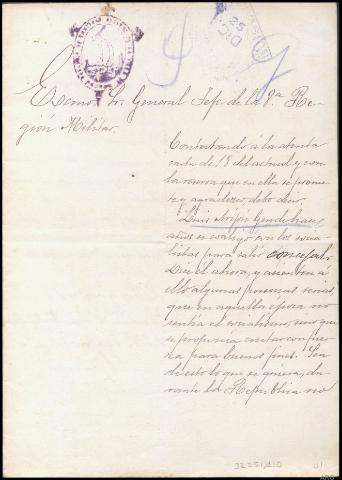 DIC.
25
Excmo. Sr. General Jefe de la 8ª Re-
gión Militar.
Contestando á la atenta
carta de 18 del actual y con
la reserva que en ella se prome-
te y agradezco, debo decir:
Luis
años se coaligó con los socia-
listas para salir concejal.
Dice él ahora, y asienten á
ello algunas personas serias,
que en aquella época no
sentía el socialismo, sino que
se proponía contar con fuer-
za para buenos fines. Sea
de esto lo que se quiera, du-
rante la República no
32251/10